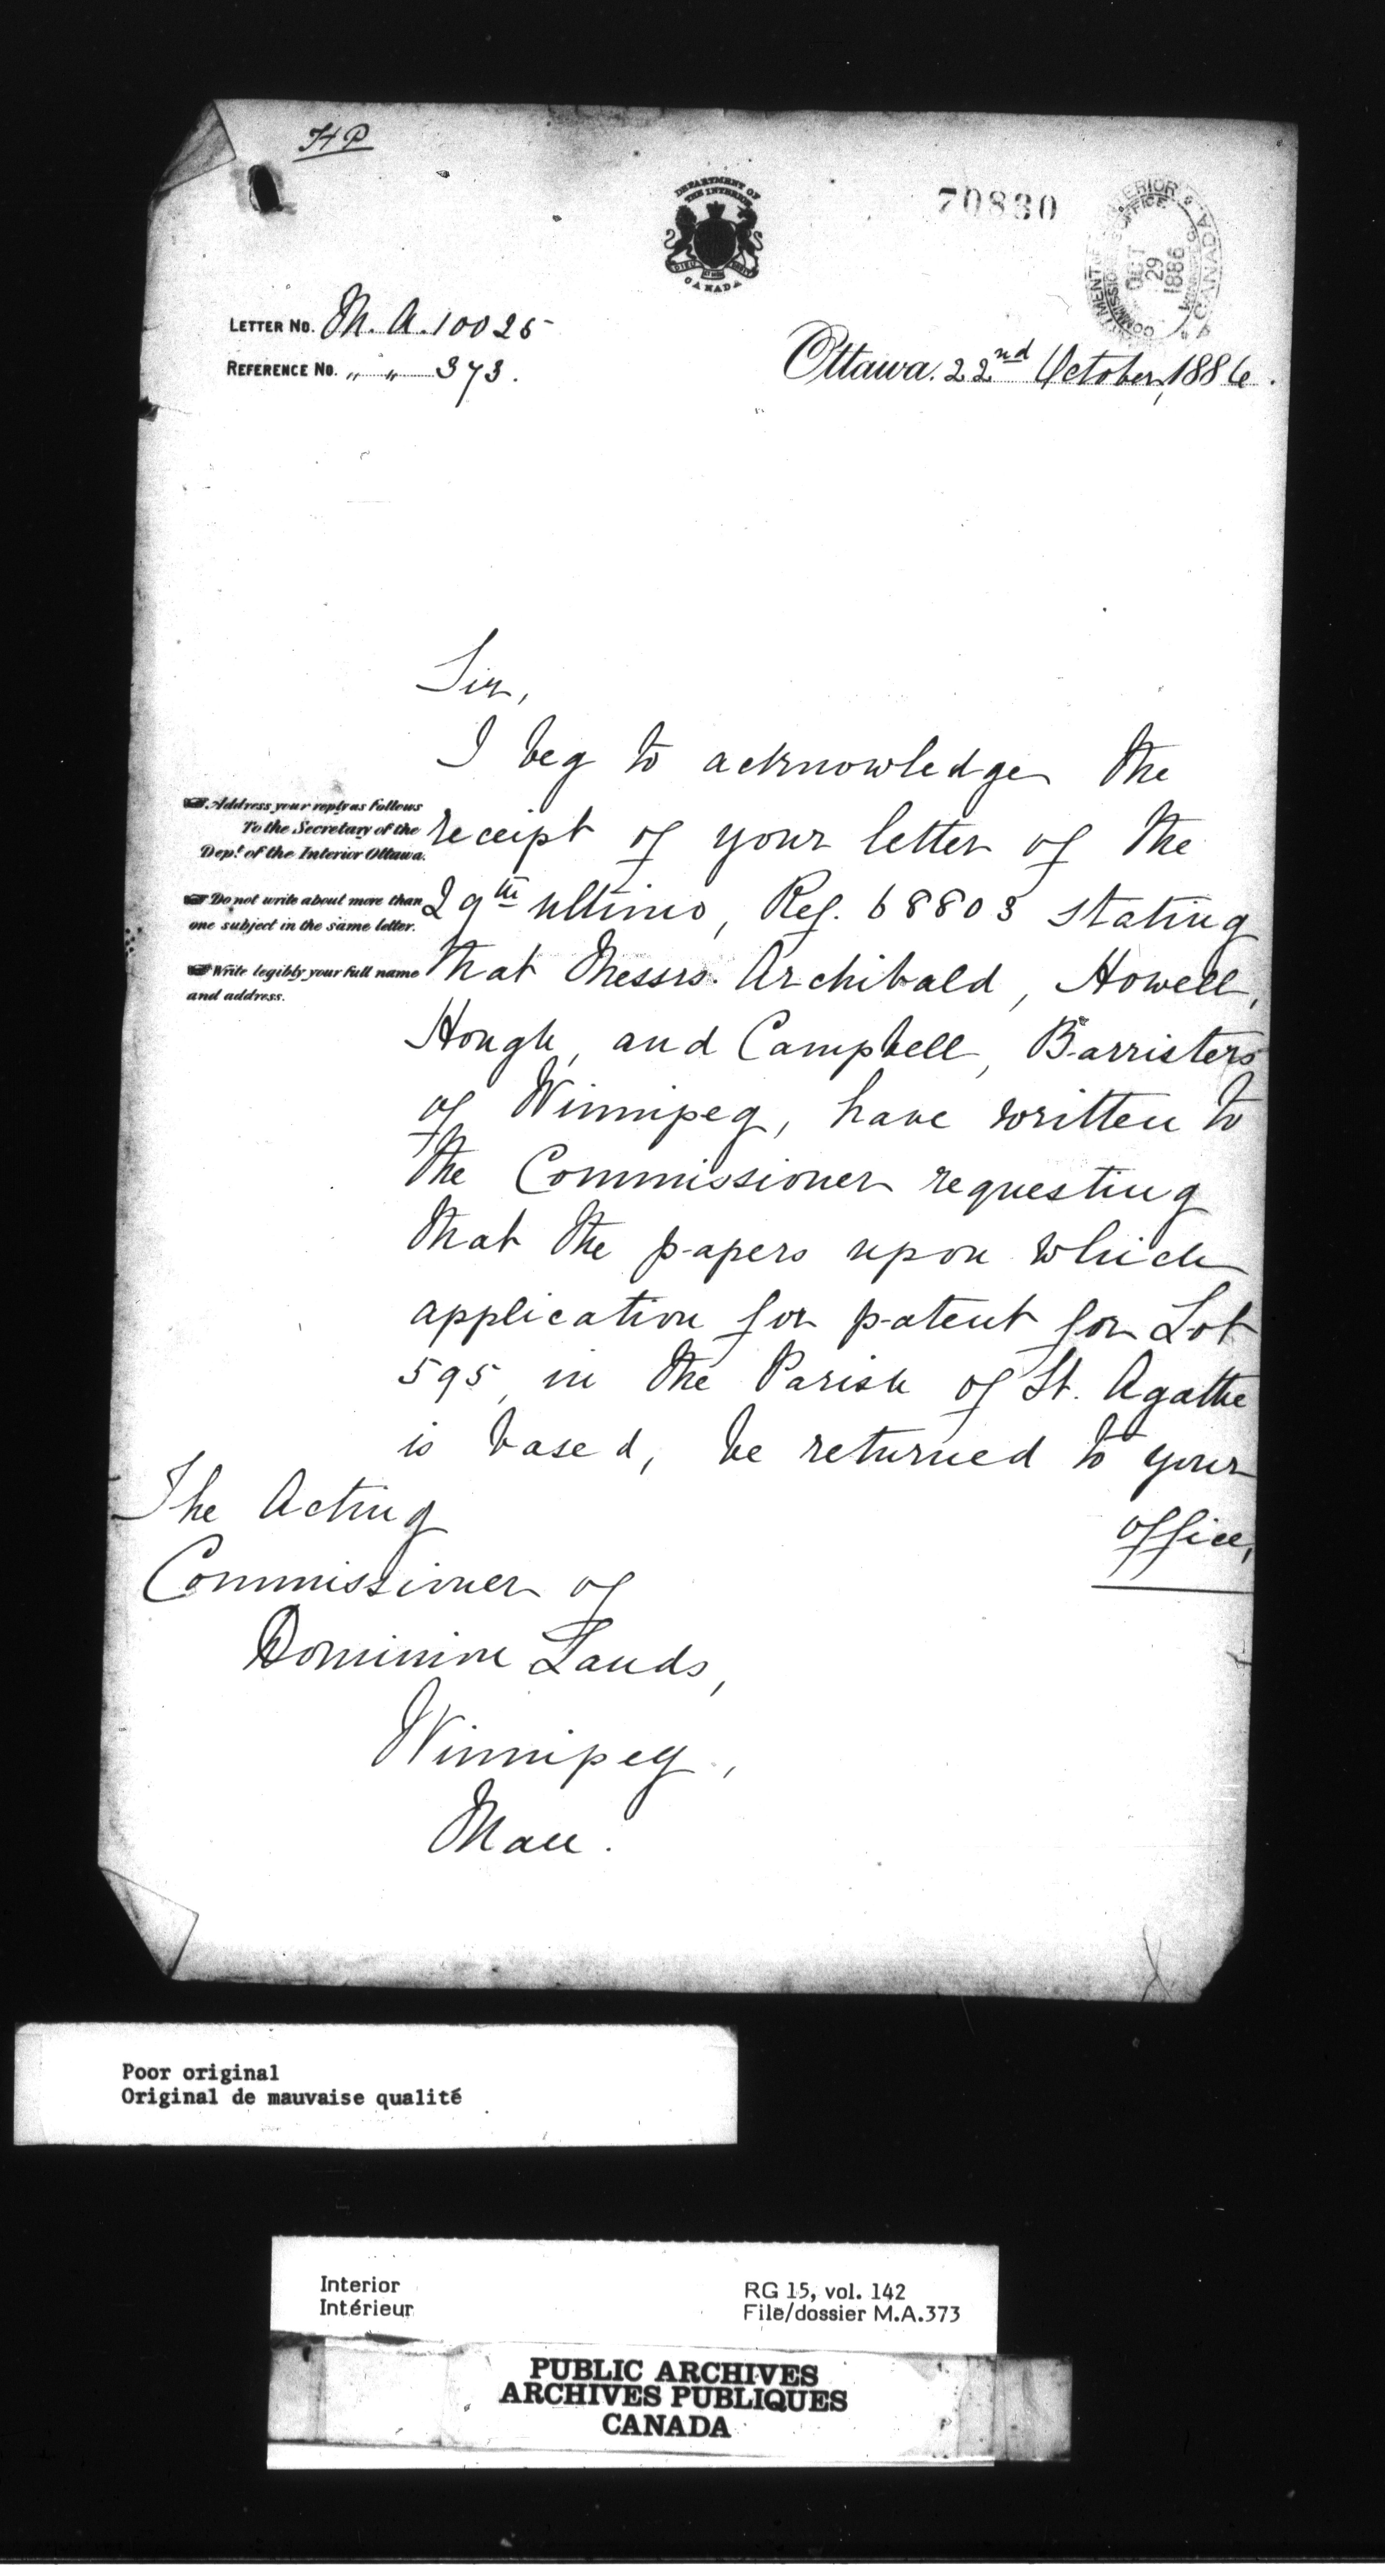 HP
DEPARTMENT OF
THE INTERIOR
CANADA
70830
OCT
29
1886
CANADA
LETTER NO. M. A. 10025
REFERENCE NO. " " 373.
Ottawa. 22nd October, 1886.
Sir,
I beg to acknowledge the
receipt of your letter of the
29th ultimo, Ref. 68803 stating
that Messrs. Archibald, Howell,
Hough, and Campbell, Barristers
of Winnipeg, have written to
the Commissioner requesting
that the papers upon which
application for patent for Lot
595, in the Parish of St. Agathe
is based, be returned to your
office,
Address your reply as follows
To the Secretary of the
Dept. of the Interior Ottawa.
Do not write about more than
one subject in the same letter.
Write legibly your full name
and address.
The Acting
Commissioner of
Dominion Lands,
Winnipeg,
Man.
Poor original
Original de mauvaise qualité
Interior
Intérieur
RG 15, vol. 142
File/dossier M.A.373
PUBLIC ARCHIVES
ARCHIVES PUBLIQUES
CANADA